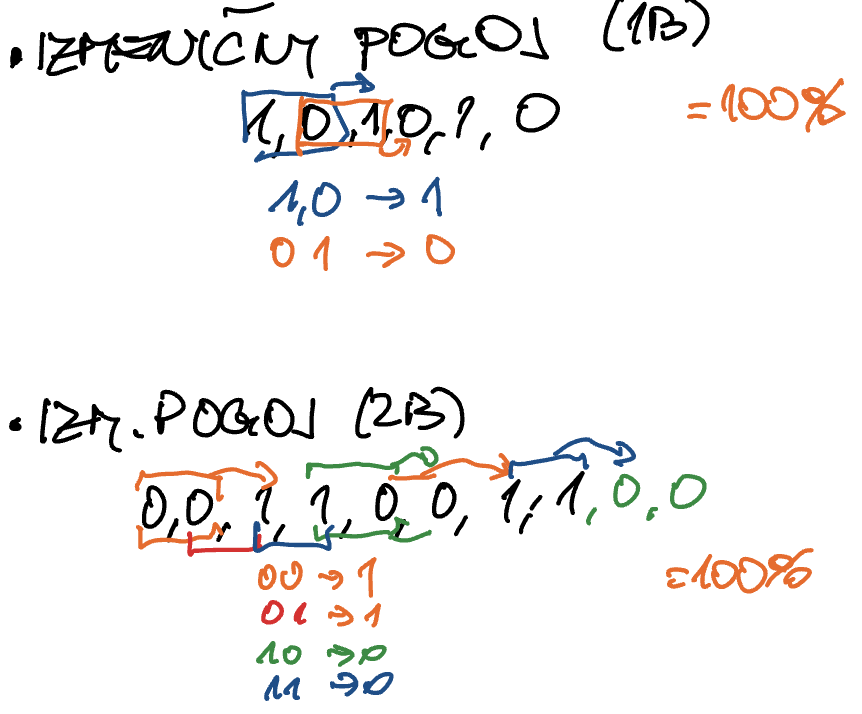 • IZMENIČNI POGOJ (1B)
1, 0, 1, 0, 1, 0 =100%
1,0 → 1
0 1 → 0
• IZM. POGOJ (2B)
0, 0, 1, 1, 0, 0, 1, 1, 0, 0
00 → 1 =100%
01 → 1
10 → 0
11 → 0